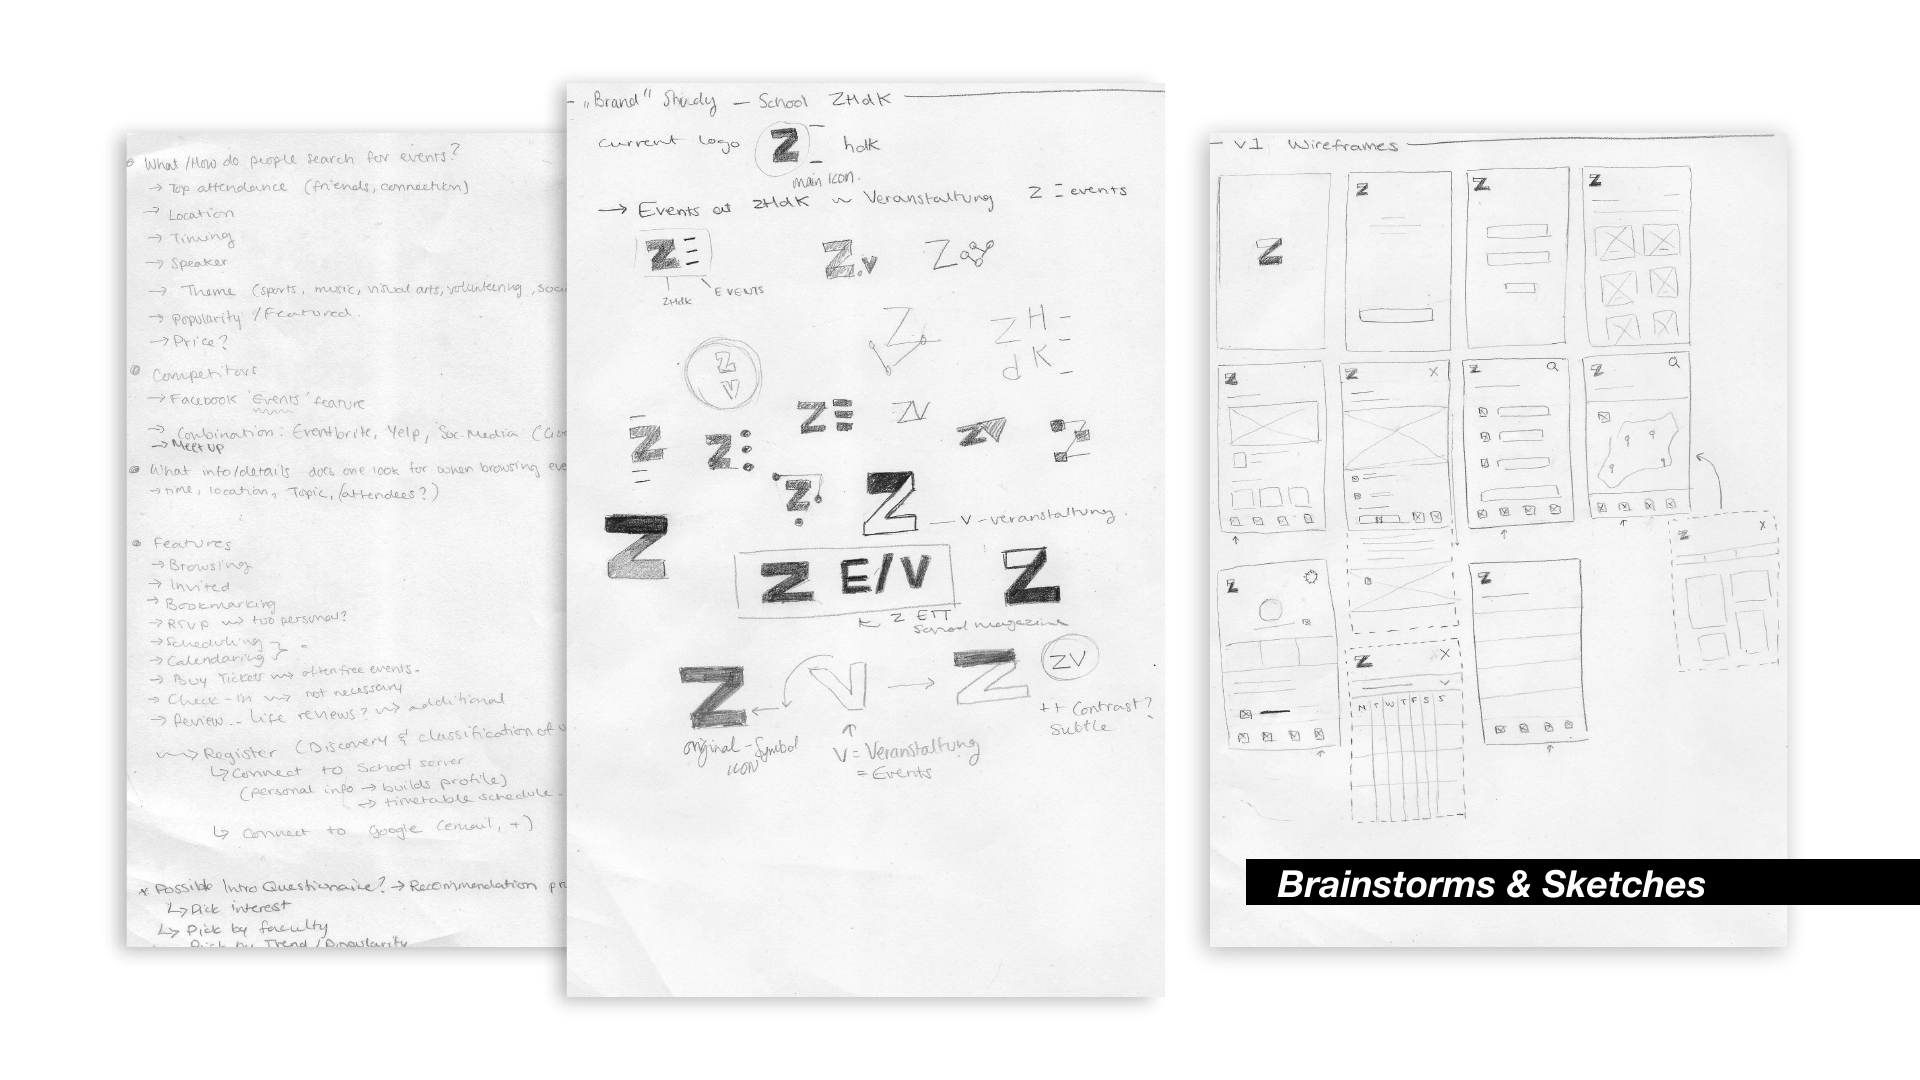 What/How do people search for events?
→ Top attendance (friends, connection)
→ Location
→ Timing
→ Speaker
→ Theme (sports, music, visual arts, volunteering,
→ Popularity / Featured.
→ Price?
Competitors
→ Facebook 'Events' feature
→ Combination: Eventbrite, Yelp, Soc. Media
→ Meet up
What info/details does one look for when browsing
→ time, location, Topic, (attendees?)
Features
→ Browsing
→ Invited
→ Bookmarking
→ RSVP → too personal?
→ Scheduling
→ Calendaring } =
→ Buy Tickets → often free events.
→ Check-In → not necessary
→ Review... Life reviews? → additional
→ Register (Discovery & classification of
↳ Connect to School server
(personal info → builds profile)
→ timetable schedule.
↳ Connect to Google (email, +)
* Possible Intro Questionaire? → Recommendation
↳ Pick interest
↳ Pick by faculty
Pick by Trend /
– „Brand" Study – School ZHdK
current logo Z hdk
main icon.
→ Events at ZHdK ~ Veranstaltung Z Ξ events
Z Ξ
Z.v
Z
ZHdK EVENTS
Z
Z H
d K
Z
V
Z Ξ
ZV
Z
Z
ZV
Z
Z
Z
– V - veranstaltung.
Z
Z E/V
Z
Z ETT
School magazine
Z ← V → Z
ZV
++ Contrast?
Subtle
original - Symbol
icon
V = Veranstaltung
= Events
– V1 Wireframes
Z
Z
Z
Z
Z
Z X
Z
Z
Z
Z X
Z
Z X
M T W T F S S
Brainstorms & Sketches